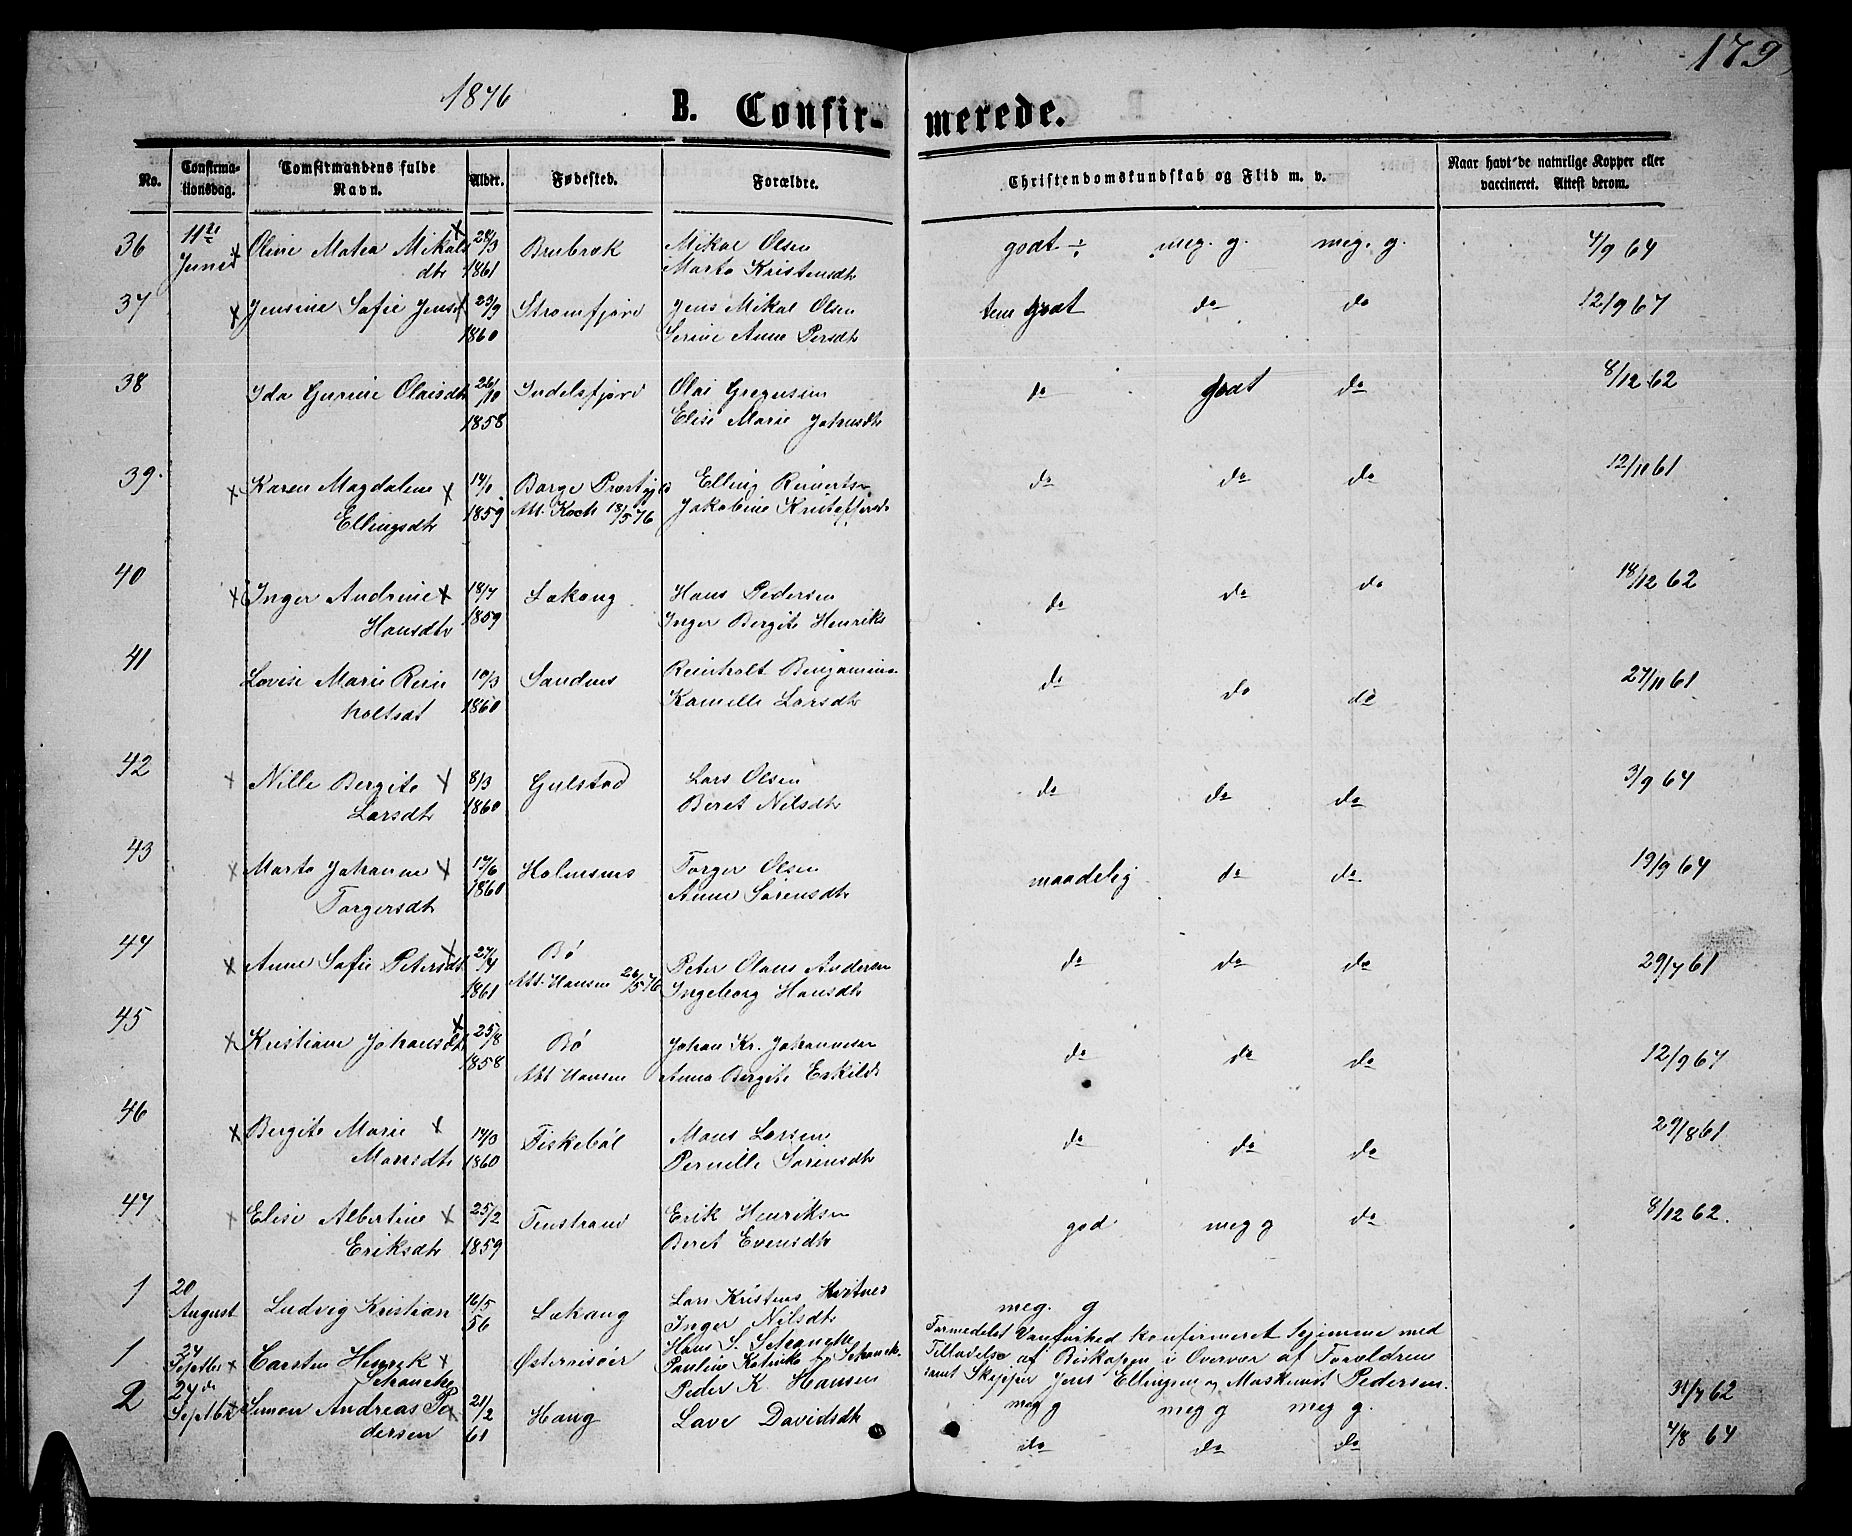 179
1876
B. Confirmerede.
No. Confirmationsdag. Comfirmandens fulde Navn. Alder. Fødested. Forældre. Christendomskundskab og Flid m. v. Naar havt de naturlige Kopper eller vaccineret. Attest derom.
36 11te Oline Matea Mikals 24/3 Brubrok Mikal Olsen godt ÷ meg. g. meg. g. 4/9 64
Junei dtr 1861 Marta Kristensdtr
37 Jensine Sofie Jensd 23/9 Strømfjord Jens Mikal Olsen tem godt do do 12/9 67
1860 Serine Anne Persdtr
38 Ida Gurine Olaisdtr 26/10 Indelsfjord Olai Gregusen do godt do 8/12 62
1858 Elise Marie Johnsdtr
39. Karen Magdalene 14/1 Borge Prestgj Elling Reinertsen do do do 12/11 61
Ellingsdtr 1859 Att. Koch 18/5 76 Jakobine
40 Inger Andrine 18/7 Lakang Hans Pedersen do do do 18/12 62
Hansdtr 1859 Inger Bergite Henriks
41 Lovise Marie Rein 10/3 Sandnes Reinholt Benjamins do do do 27/11 61
holtsdt 1860 Kamille Larsdtr
42 Nille Bergite 8/3 Gulstad Lars Olsen do do do 3/9 64
Larsdtr 1860 Beret Nilsdtr
43 Marta Johanne 17/6 Holmsnes Torger Olsen maadelig do do 19/9 64
Torgersdtr 1860 Anne Sørensdtr
44 Anne Sofie Petersdt 27/4 Bø Peter Olaus Andersen do do do 29/7 61
1861 Att. Hansen 26/5 76 Ingeborg Hansdtr
45 Kristiane Johansdt 25/8 Bø Johan Kr. Johannesen do do do 12/9 67
1858 Att Hansen Anna Bergite Eskilds
46 Bergite Marie 14/3 Fiskebøl Mons Larsen do do do 29/8 61
Monsdtr 1860 Pernille Sørensdtr
47 Elise Albertine 25/2 Tenstrand Erik Henriksen god meg g do 8/12 62.
Eriksdtr 1859 Beret Evensdtr
1 20 Ludvig Kristian 16/5 Lakang Lars Kristens Hvitnes meg. g
August 56 Inger Nilsdtr
1 24 Carsten Henrik Østerrisøer Hans S. Schanche Formedelst Vanførhed konfirmeret hjemme med
Septbr Schanche Pauline Schanck Tilladelse af Biskopen i Overvær af Forældrene
samt Skipper Jens Ellingsen og Pedersen.
2 24de Simon Andreas Pe 21/2 Haug Peder K Hansen meg g meg g meg g. 31/7 62
Septbr dersen 61 Lave Davidsdtr do do do 4/8 64